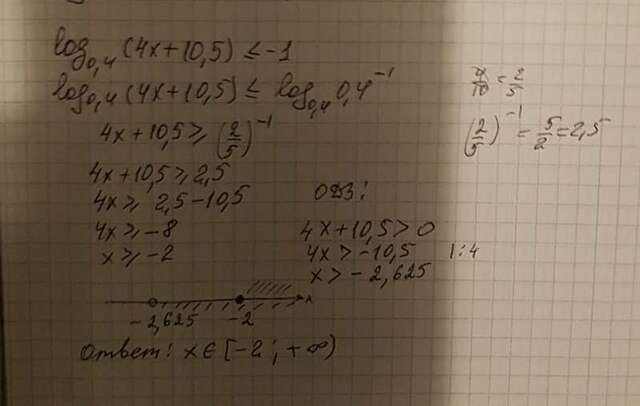 log₀,₄(4x+10,5) ≤ -1
log₀,₄(4x+10,5) ≤ log₀,₄ 0,4⁻¹
4/10 = 2/5
4x+10,5 ≥ (2/5)⁻¹
(2/5)⁻¹ = 5/2 = 2,5
4x+10,5 ≥ 2,5
4x ≥ 2,5-10,5
ОДЗ:
4x ≥ -8
4x+10,5>0
x ≥ -2
4x > -10,5 |:4
x > -2,625
-2,625 -2 x
Ответ: x ∈ [-2; +∞)